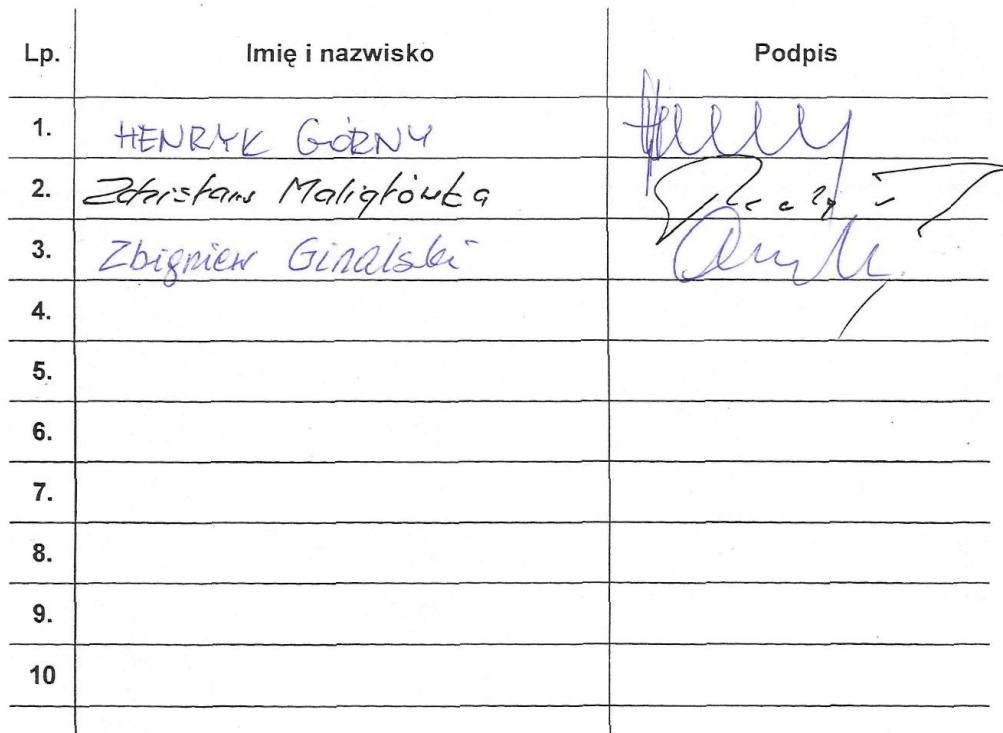 Lp. Imię i nazwisko Podpis
1. HENRYK GÓRNY
2. Zdzisław Maligłówka
3. Zbigniew Ginalski
4.
5.
6.
7.
8.
9.
10